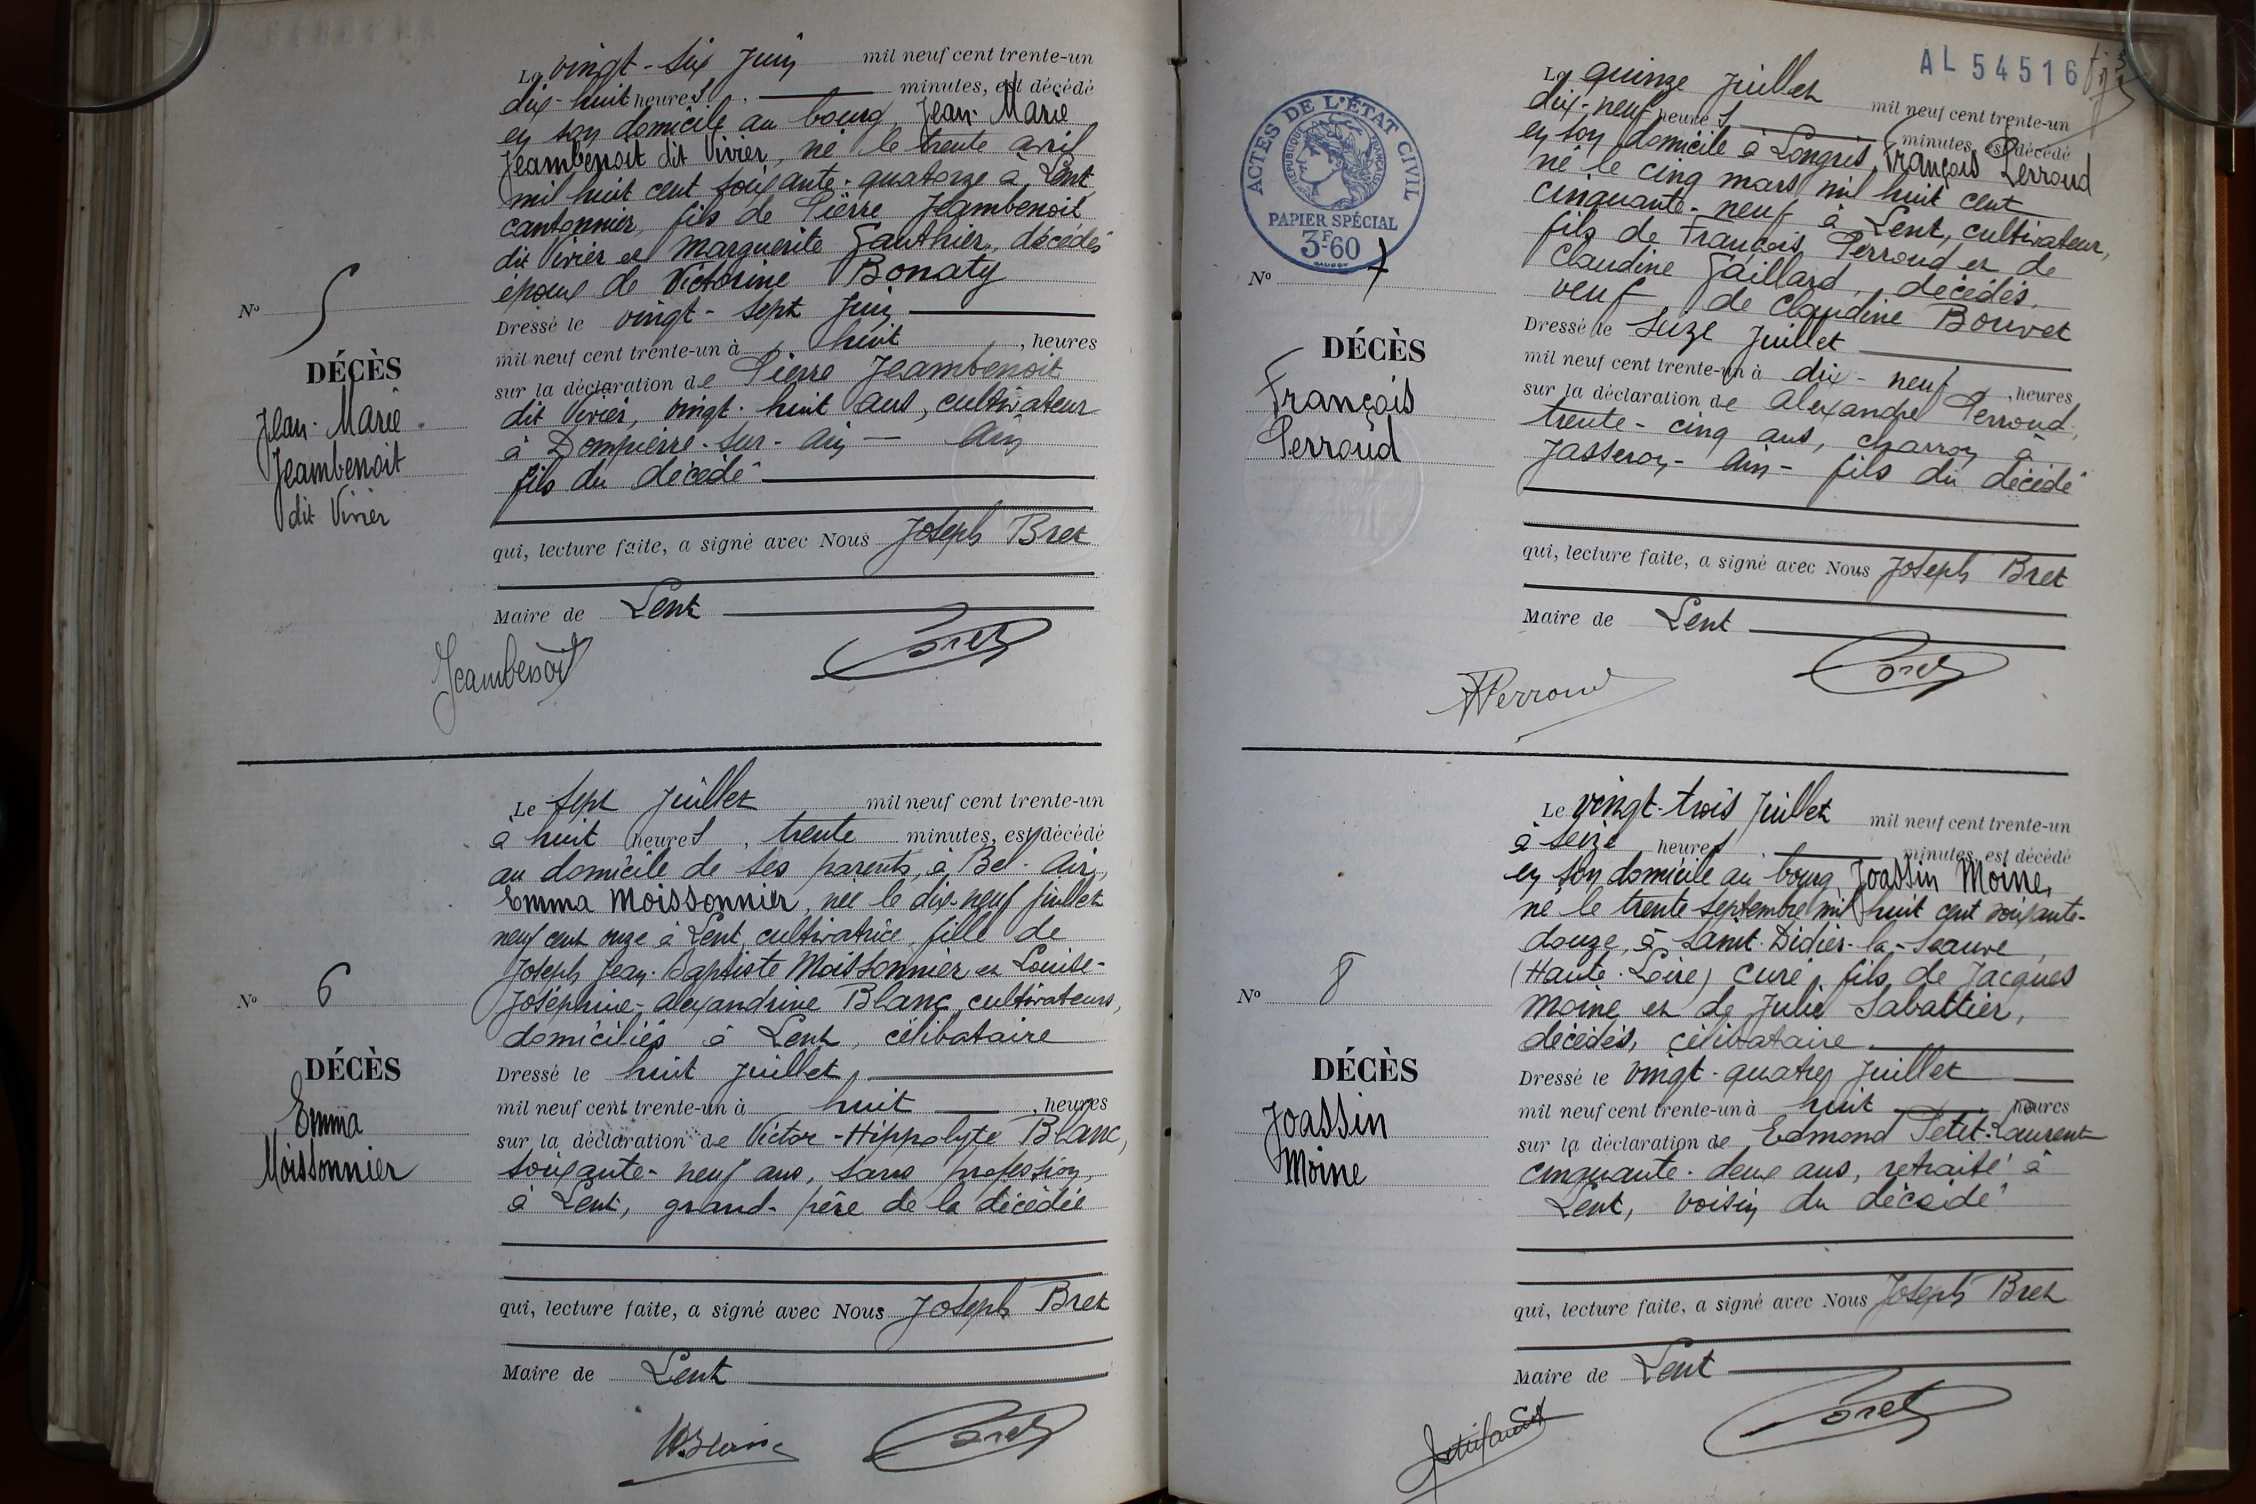 Le vingt-six Juin mil neuf cent trente-un
dix-huit heures, minutes, est décédé
en son domicile au bourg, Jean-Marie
Jeambenoit dit Vivier, né le trente avril
mil huit cent soixante-quatorze à Lent
cantonnier, fils de Pierre Jeambenoit
dit Vivier et Marguerite Gauthier, décédés
époux de Victorine Bonaty
Dressé le vingt-sept Juin
mil neuf cent trente-un à huit, heures
sur la déclaration de Pierre Jeambenoit
dit Vivier, vingt-huit ans, cultivateur
à Dompierre-sur-Ain — Ain
fils du décédé
qui, lecture faite, a signé avec Nous Joseph Bret
Maire de Lent
Jeambenoit
Bret
No 5
DÉCÈS
Jean-Marie
Jeambenoit
dit Vivier
Le sept Juillet mil neuf cent trente-un
à huit heures, trente minutes, est décédé
au domicile de ses parents, à Bel-Air,
Emma Moissonnier, née le dix neuf juillet
neuf cent onze à Lent, cultivatrice, fille de
Joseph Jean-Baptiste Moissonnier et Louise-
Joséphine-Alexandrine Blanc, cultivateurs,
domiciliés à Lent, célibataire
Dressé le huit Juillet
mil neuf cent trente-un à huit, heures
sur la déclaration de Victor-Hippolyte Blanc,
soixante-neuf ans, sans profession,
à Lent, grand-père de la décédée
qui, lecture faite, a signé avec Nous Joseph Bret
Maire de Lent
Blanc
Bret
No 6
DÉCÈS
Emma
Moissonnier
AL 54516
ACTES DE L'ÉTAT CIVIL
RÉPUBLIQUE FRANÇAISE
PAPIER SPÉCIAL
3F60
Le quinze Juillet mil neuf cent trente-un
dix-neuf heures minutes, est décédé
en son domicile à Longris, François Perroud
né le cinq mars mil huit cent
cinquante-neuf à Lent, cultivateur,
fils de François Perroud et de
Claudine Gaillard, décédés.
veuf de Claudine Bouvet
Dressé le seize Juillet
mil neuf cent trente-un à dix-neuf, heures
sur la déclaration de Alexandre Perroud,
trente-cinq ans, charron à
Jasseron-Ain-fils du décédé
qui, lecture faite, a signé avec Nous Joseph Bret
Maire de Lent
Perroud
Bret
No 7
DÉCÈS
François
Perroud
Le vingt-trois Juillet mil neuf cent trente-un
à seize heures minutes, est décédé
en son domicile au bourg, Joassin Moine,
né le trente septembre mil huit cent soixante-
douze, à Saint-Didier-la-Seauve
(Haute-Loire) curé, fils de Jacques
Moine et de Julie Sabattier,
décédés, célibataire.
Dressé le vingt-quatre Juillet
mil neuf cent trente-un à huit heures
sur la déclaration de Edmond Petit-Laurent
cinquante-deux ans, retraité à
Lent, voisin du décédé
qui, lecture faite, a signé avec Nous Joseph Bret
Maire de Lent
Bret
No 8
DÉCÈS
Joassin
Moine